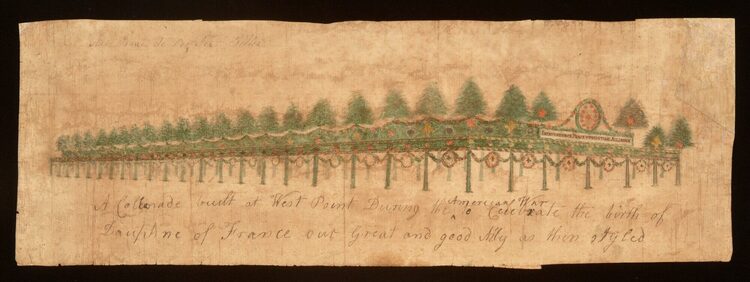 INDEPENDENCE PEACE PERPETUAL ALLIANCE
A Collonade built at West Point During the American War to Celebrate the birth of
Dauphne of France our Great and good Ally as then styled